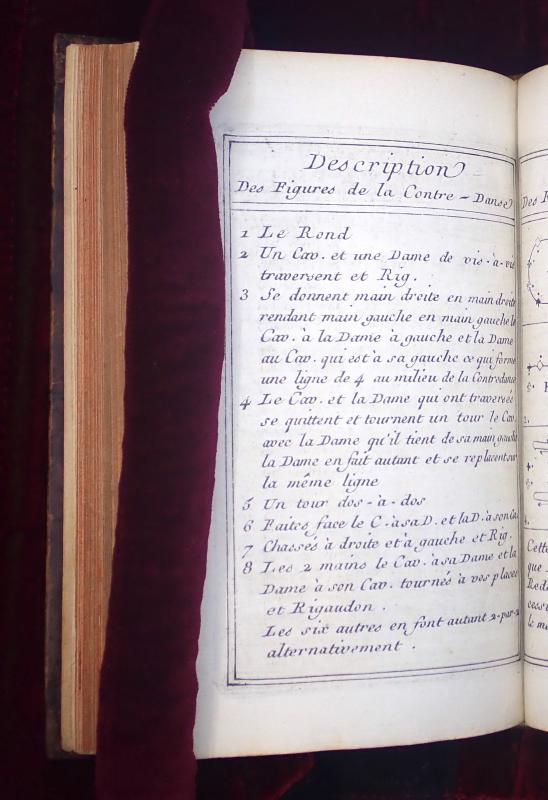 Description
Des Figures de la Contre - Danse
1 Le Rond
2 Un Cav. et une Dame de vis-à-vis
traversent et Rig.
3 Se donnent main droite en main droite
rendant main gauche en main gauche le
Cav. à la Dame à gauche et la Dame
au Cav. qui est à sa gauche ce qui forme
une ligne de 4 au milieu de la Contredanse
4 Le Cav. et la Dame qui ont traversés
se quittent et tournent un tour le Cav.
avec la Dame qu'il tient de sa main gauche
la Dame en fait autant et se replacent sur
la même ligne
5 Un tour dos-à-dos
6 Faites face le C. à sa D. et la D. à son Ca.
7 Chassés à droite et à gauche et Rig.
8 Les 2 mains le Cav. à sa Dame et la
Dame à son Cav. tournés à vos places
et Rigaudon.
Les six autres en font autant 2-par-2
alternativement.
Des F
5.
2.
4.
Cette
que
Red
cess
le m